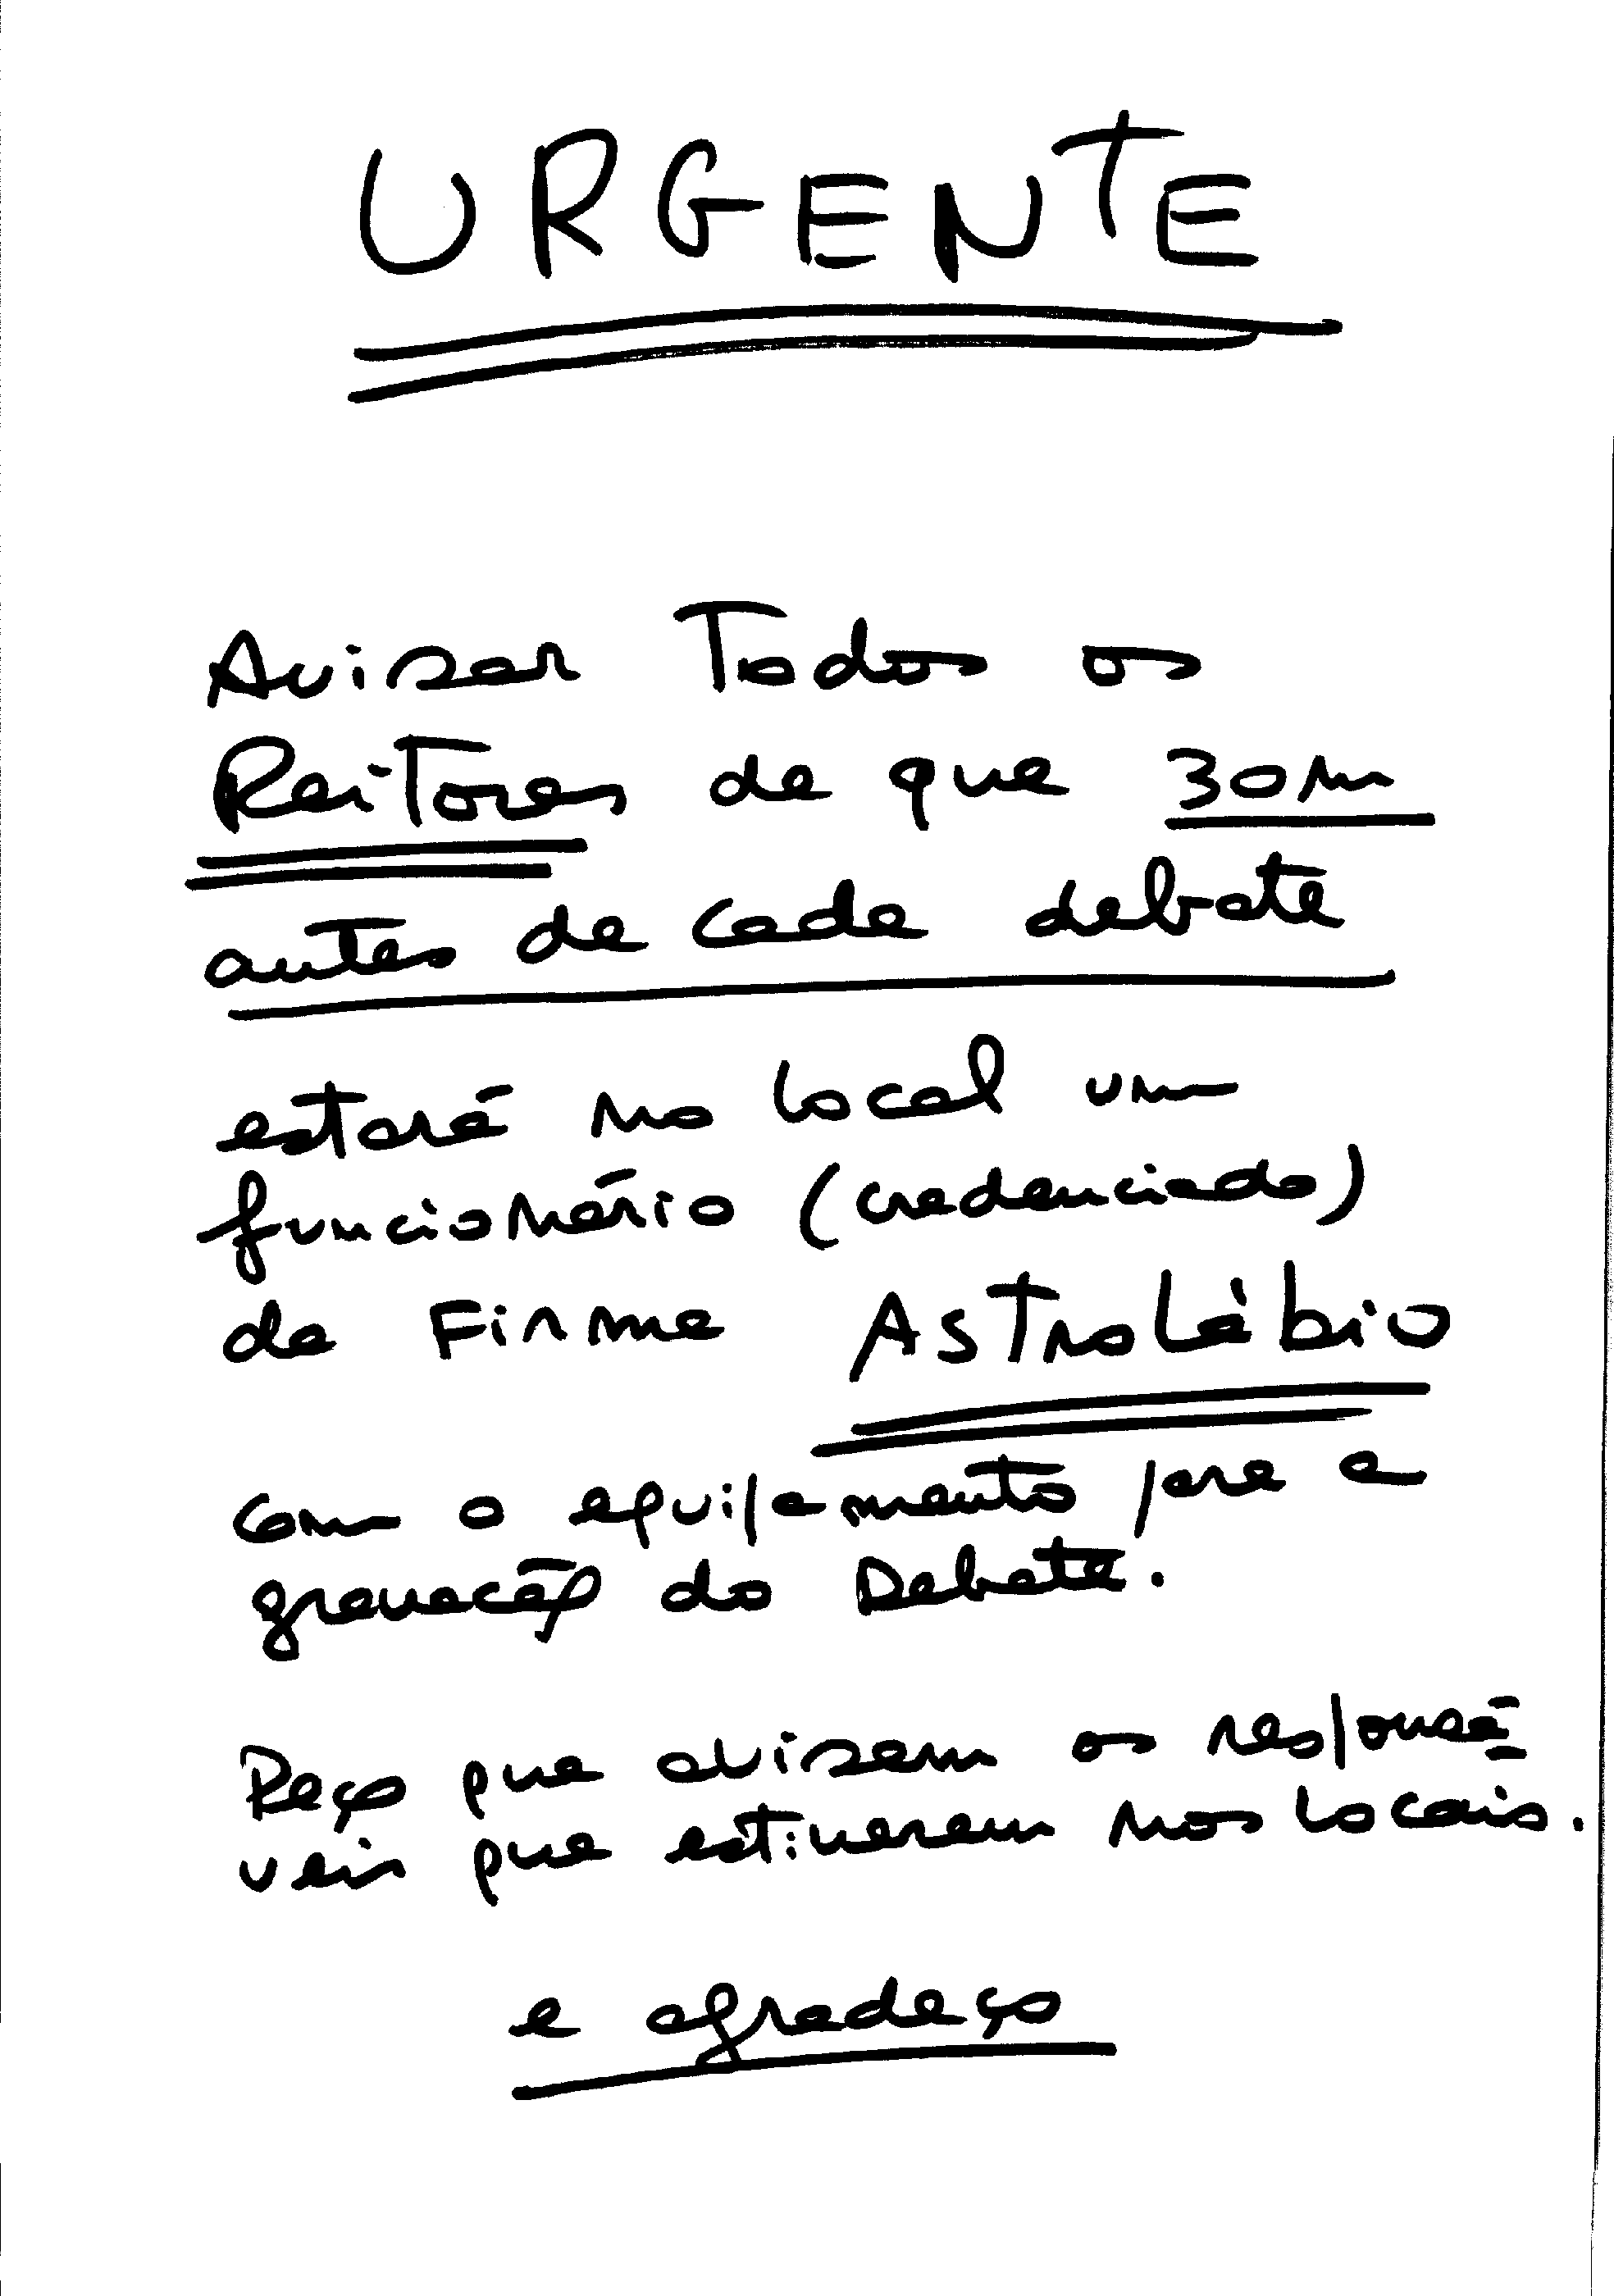 URGENTE
Avisar Todos os
Reitores de que 30m
antes de cada debate
estará no local um
funcionário (credenciado)
da Firma Astrolábio
com o equipamento para a
gravação do Debate.
Peço que avisem os responsá
veis que estiverem nos locais.
e agradeço